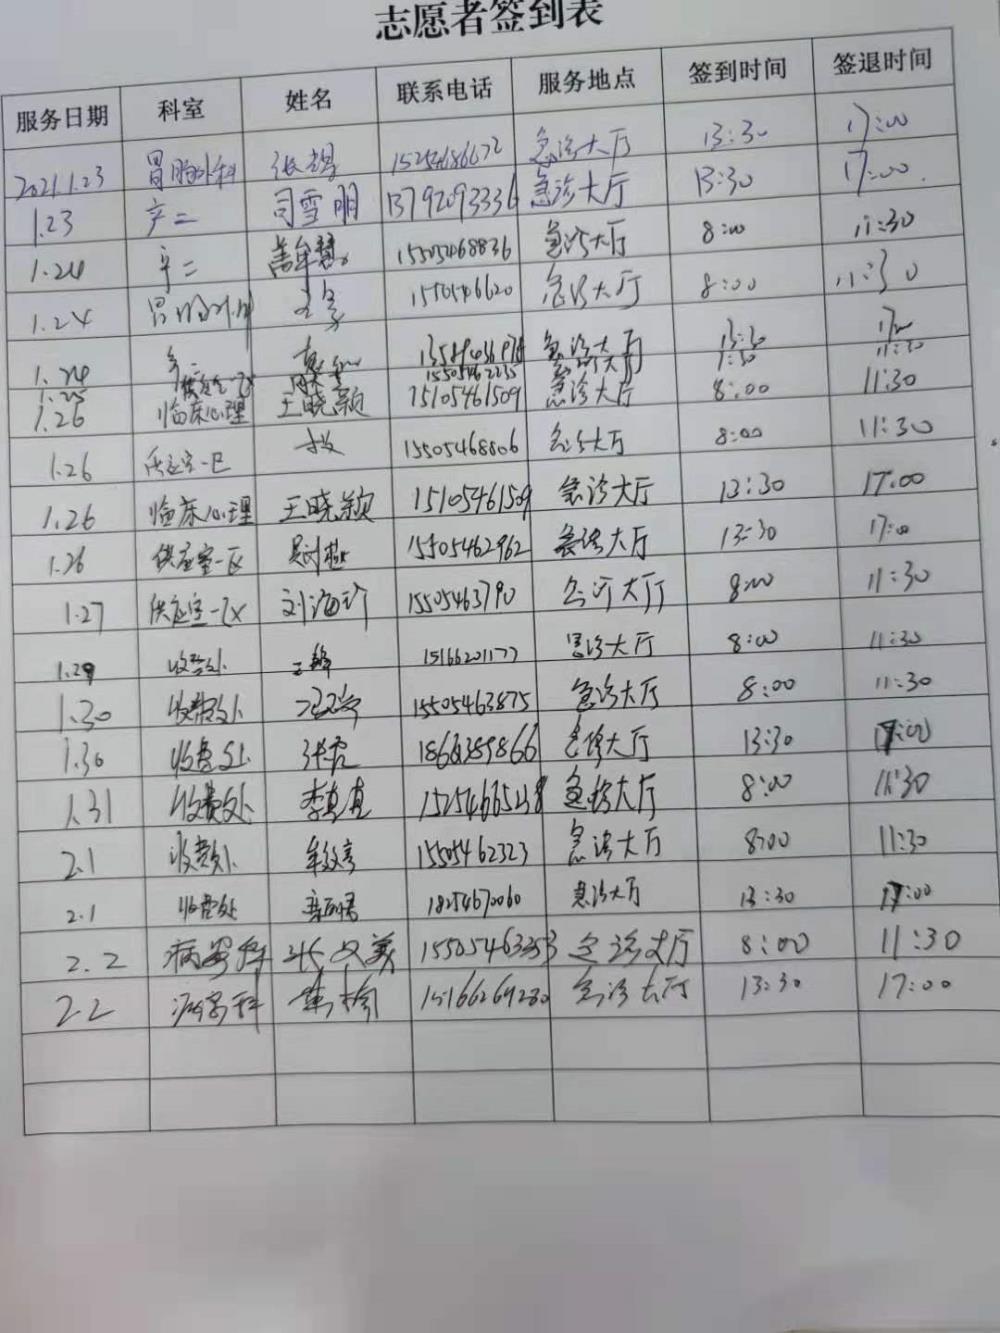 志愿者签到表
服务日期 科室 姓名 联系电话 服务地点 签到时间 签退时间
2021.1.23 胃肠外科 张 急诊大厅 13:30 17:00
1.23 产二 司雪明 13792093336 急诊大厅 13:30 17:00
1.24 产二 15505468836 急诊大厅 8:00 11:30
1.24 胃肠外科 1550546620 急诊大厅 8:00 11:30
1.24 急诊大厅 13:30
1.25 15505462235 11:30
1.26 临床心理 王晓颖 15105461509 急诊大厅 8:00 11:30
1.26 供应室一区 15505468806 急诊大厅 8:00 11:30
1.26 临床心理 王晓颖 15105461509 急诊大厅 13:30 17:00
1.26 供应室一区 15505462962 急诊大厅 13:30 17:00
1.27 供应室一区 刘海珍 15505463790 急诊大厅 8:00 11:30
1.29 收费处 15166201177 急诊大厅 8:00 11:30
1.30 收费处 15505463875 急诊大厅 8:00 11:30
1.30 收费处 急诊大厅 13:30 17:00
1.31 收费处 李真真 急诊大厅 8:00 11:30
2.1 收费处 15505462323 急诊大厅 8:00 11:30
2.1 收费处 18254670060 急诊大厅 13:30 17:00
2.2 病案科 张文美 15505463353 急诊大厅 8:00 11:30
2.2 病案科 15166269280 急诊大厅 13:30 17:00